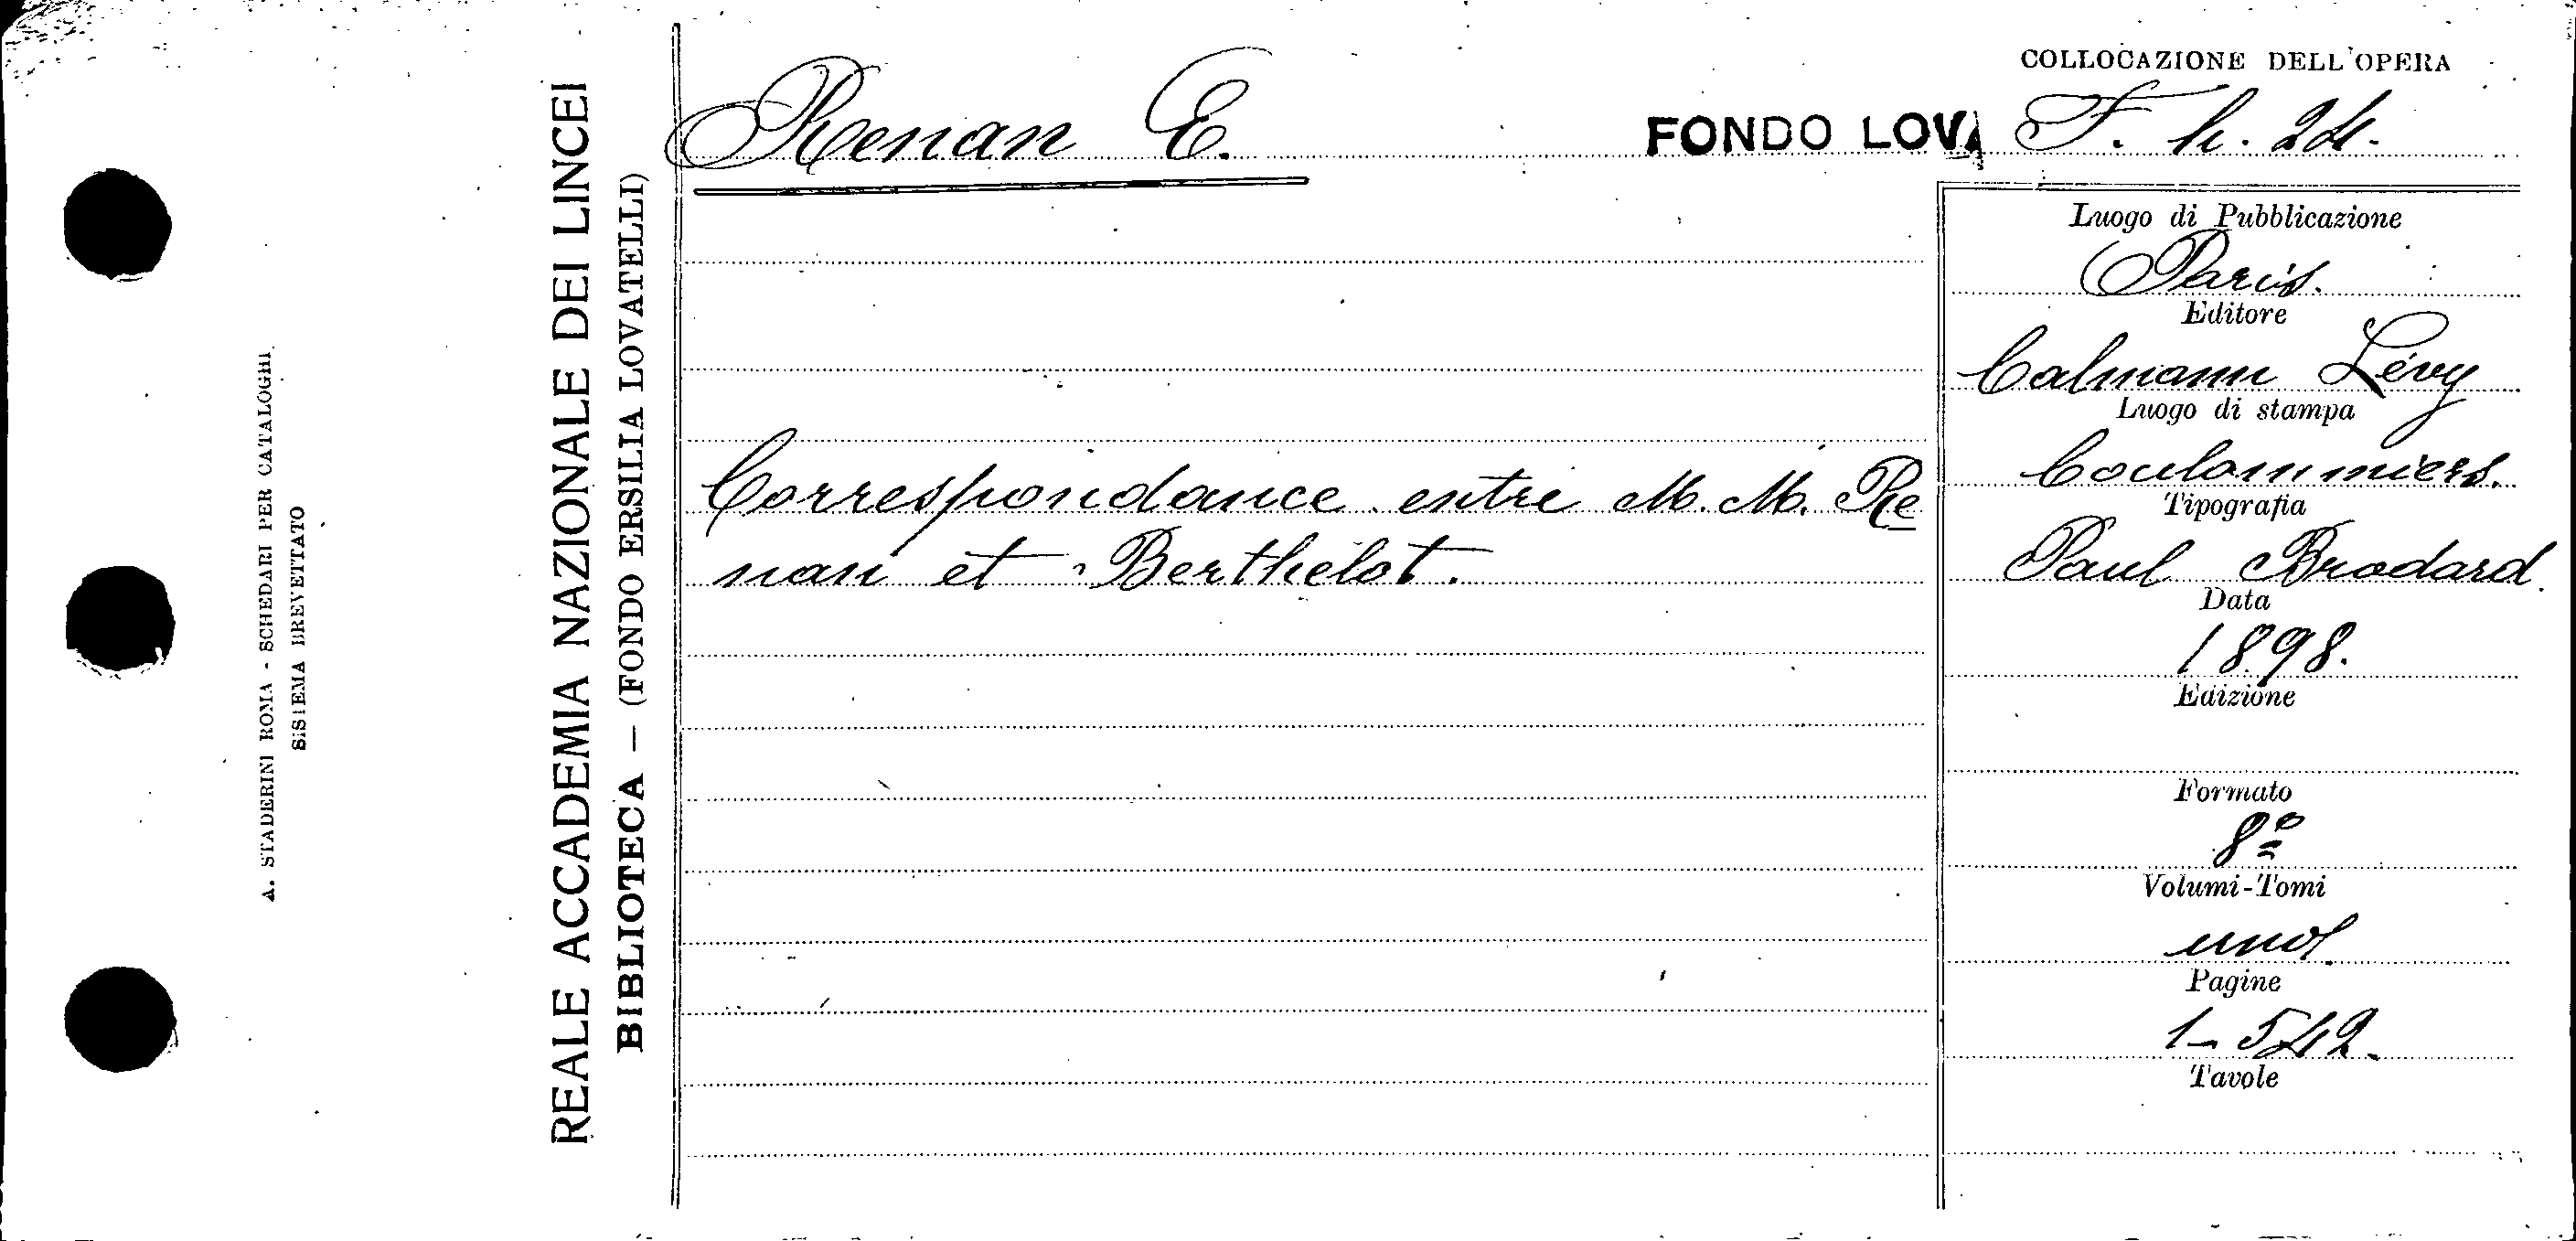 A. STADERINI ROMA - SCHEDARI PER CATALOGHI
SISTEMA BREVETTATO
REALE ACCADEMIA NAZIONALE DEI LINCEI
BIBLIOTECA — (FONDO ERSILIA LOVATELLI)
Renan E.
FONDO LOVA
COLLOCAZIONE DELL'OPERA
F. h. 24.
Correspondance entre M. M. Re
nan et Berthelot.
Luogo di Pubblicazione
Paris.
Editore
Calmann Lévy
Luogo di stampa
Coulommiers.
Tipografia
Paul Brodard.
Data
1898.
Edizione
Formato
8º
Volumi-Tomi
uno.
Pagine
1-542.
Tavole